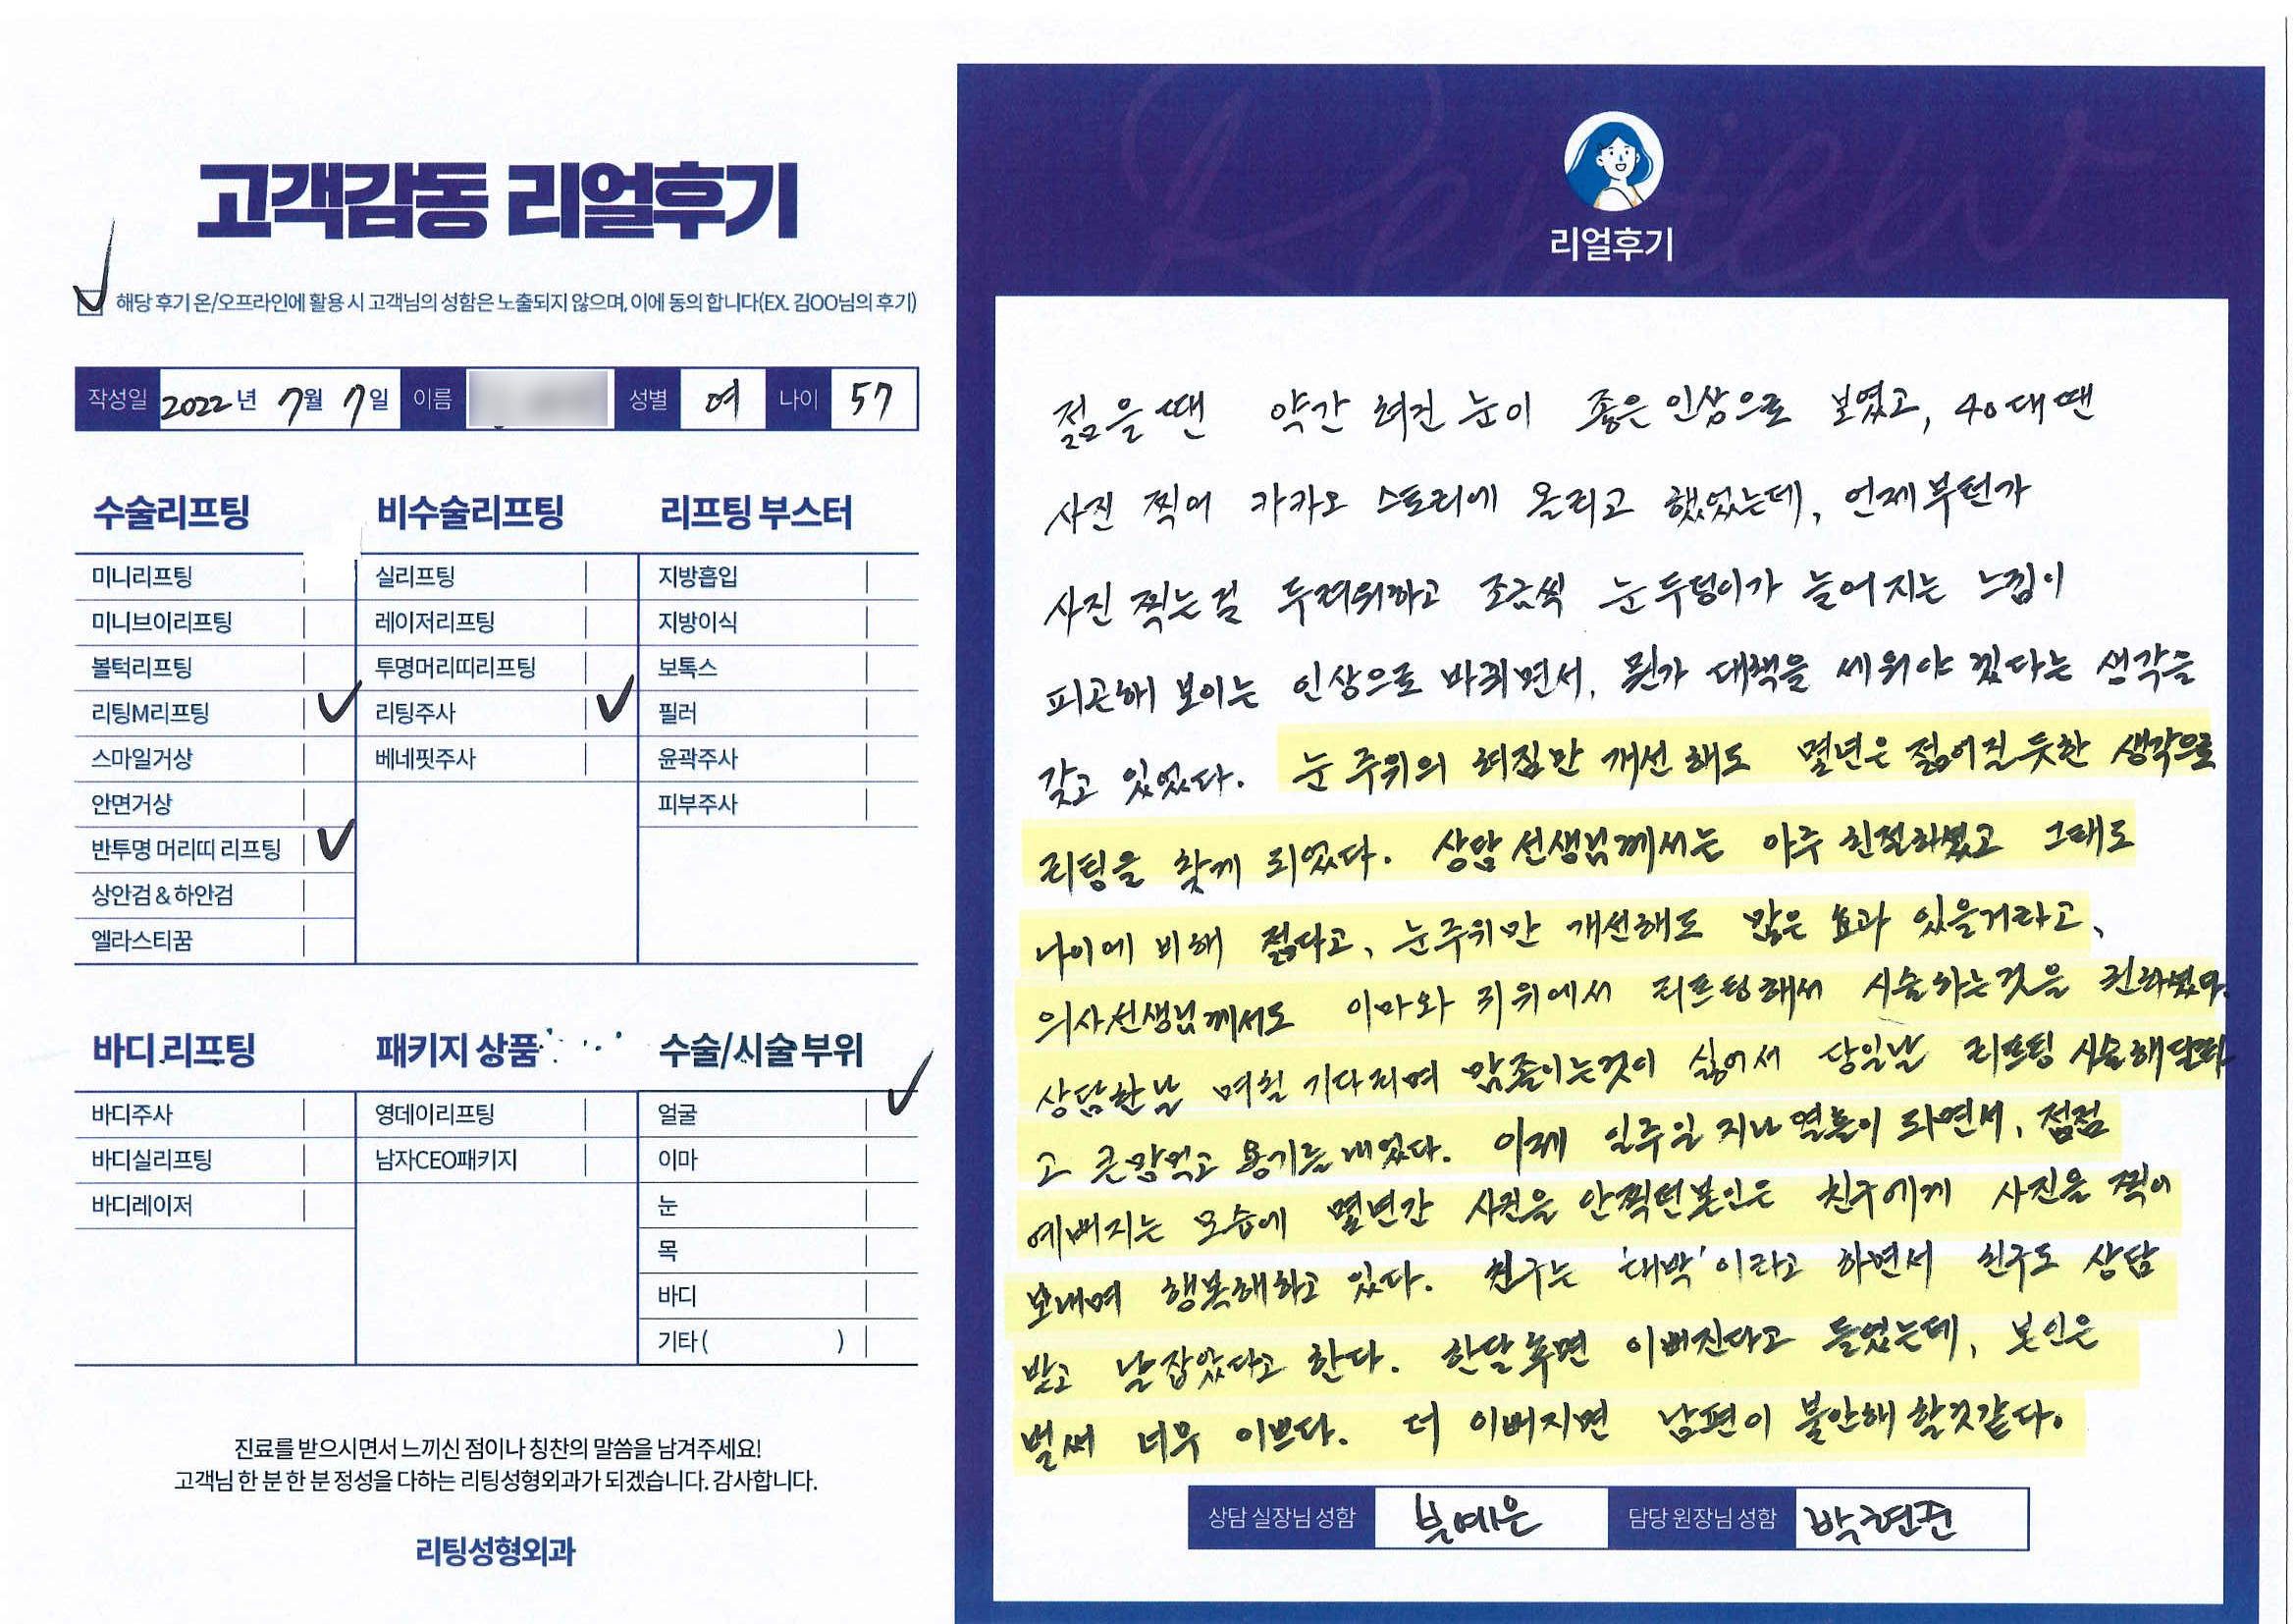 고객감동 리얼후기
해당 후기 온/오프라인에 활용 시 고객님의 성함은 노출되지 않으며, 이에 동의 합니다(EX. 김OO님의 후기)
작성일 2022년 7월 7일 이름 성별 여 나이 57
수술리프팅
미니리프팅
미니브이리프팅
볼턱리프팅
리팅M리프팅
스마일거상
안면거상
반투명 머리띠 리프팅
상안검 & 하안검
엘라스티꿈
비수술리프팅
실리프팅
레이저리프팅
투명머리띠리프팅
리팅주사
베네핏주사
리프팅 부스터
지방흡입
지방이식
보톡스
필러
윤곽주사
피부주사
바디 리프팅
바디주사
바디실리프팅
바디레이저
패키지 상품
영데이리프팅
남자CEO패키지
수술/시술 부위
얼굴
이마
눈
목
바디
기타( )
진료를 받으시면서 느끼신 점이나 칭찬의 말씀을 남겨주세요!
고객님 한 분 한 분 정성을 다하는 리팅성형외과가 되겠습니다. 감사합니다.
리팅성형외과
Review
리얼후기
젊을땐 약간 쳐진 눈이 좋은 인상으로 보였고, 40대땐
사진 찍어 카카오 스토리에 올리고 했었는데, 언제부턴가
사진 찍는걸 두려워하고 조금씩 눈두덩이가 늘어지는 느낌이
피곤해 보이는 인상으로 바뀌면서, 뭔가 대책을 세워야 겠다는 생각을
갖고 있었다. 눈 주위의 쳐짐만 개선해도 몇년은 젊어질듯한 생각으로
리팅을 찾게 되었다. 상담 선생님께서는 아주 친절하셨고 그래도
나이에 비해 젊다고, 눈주위만 개선해도 많은 효과 있을거라고,
의사선생님께서도 이마와 귀위에서 리프팅해서 시술하는것을 권하셨다.
상담한날 며칠 기다리며 맘졸이는것이 싫어서 당일날 리프팅 시술해달라
고 큰맘먹고 용기를 내었다. 이제 일주일 지나 열흘이 되면서, 점점
예뻐지는 모습에 몇년간 사진을 안찍던본인은 친구에게 사진을 찍어
보내며 행복해하고 있다. 친구는 '대박'이라고 하면서 친구도 상담
받고 날잡았다고 한다. 한달후면 이뻐진다고 들었는데, 본인은
벌써 너무 이쁘다. 더 이뻐지면 남편이 불안해 할것같다.
상담 실장님 성함 부예은 담당 원장님 성함 박현준